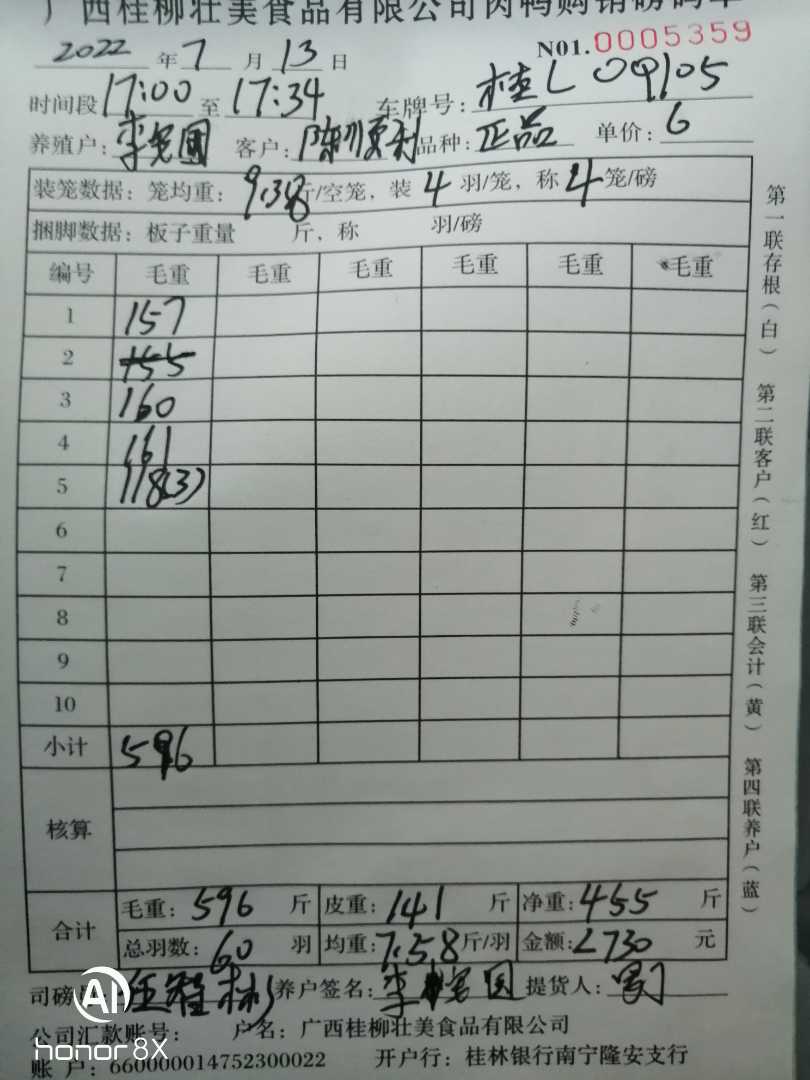 广西桂柳壮美食品有限公司肉鸭购销磅码单
2022 年 7 月 13 日 N01.0005359
时间段 17:00 至 17:34 车牌号: 桂L 09105
养殖户: 李 国 客户: 陈顺利 品种: 正品 单价: 6
装笼数据: 笼均重: 9.38 斤/空笼, 装 4 羽/笼, 称 4 笼/磅
捆脚数据: 板子重量 斤, 称 羽/磅
编号 毛重 毛重 毛重 毛重 毛重 毛重
1 157
2 155
3 160
4 161
5 118(3)
6
7
8
9
10
小计 596
核算
合计 毛重: 596 斤 皮重: 141 斤 净重: 455 斤
总羽数: 60 羽 均重: 7.58 斤/羽 金额: 2730 元
司磅员: 养户签名: 李 国 提货人:
公司汇款账号: 户名: 广西桂柳壮美食品有限公司
账 户: 660000014752300022 开户行: 桂林银行南宁隆安支行
第一联存根(白) 第二联客户(红) 第三联会计(黄) 第四联养户(蓝)
AI
honor 8X